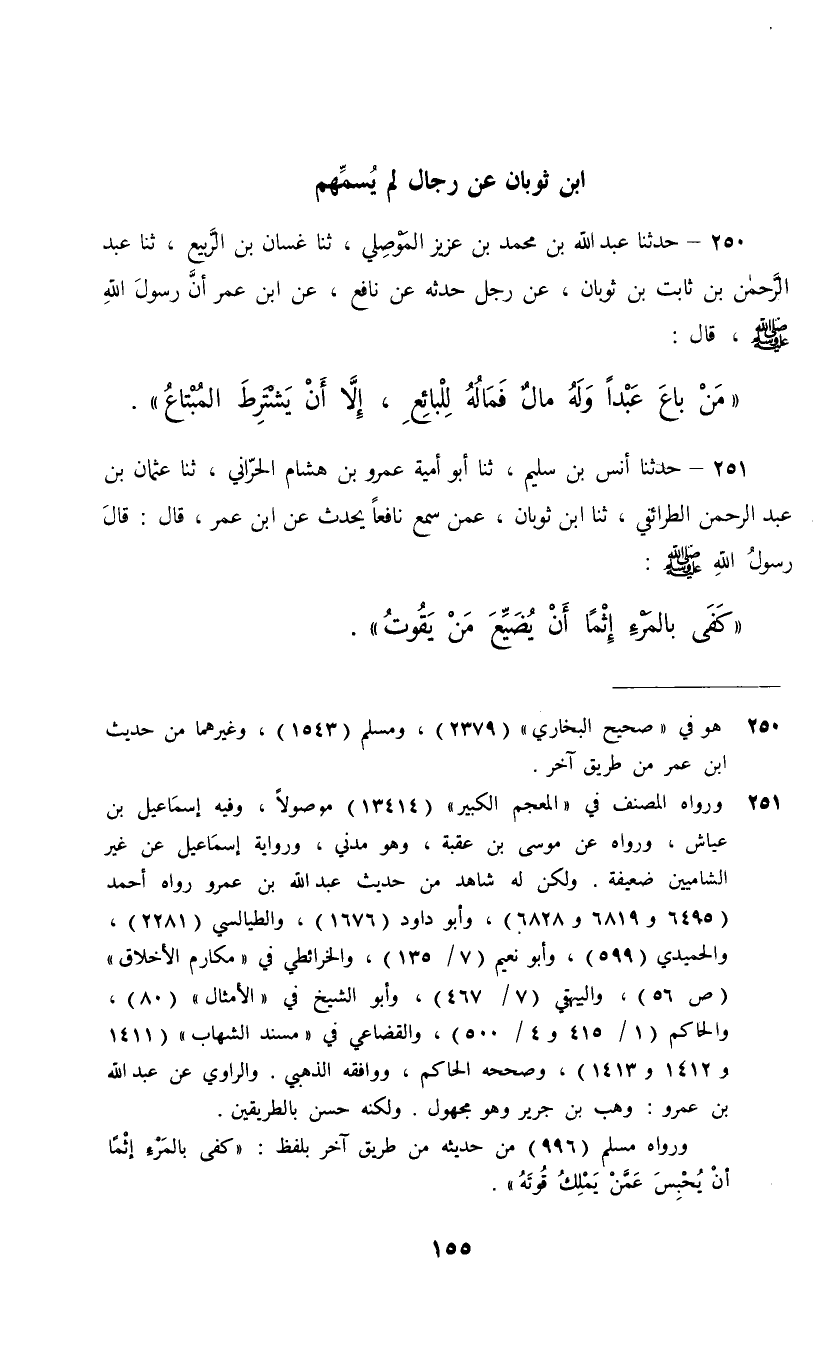 ابن ثوبان عن رجال لم يُسمِّهم
٢٥٠ – حدثنا عبد الله بن محمد بن عزيز المَوْصِلي ، ثنا غسان بن الرَّبيع ، ثنا عبد
الرَّحمٰن بن ثابت بن ثوبان ، عن رجل حدثه عن نافع ، عن ابن عمر أنَّ رسولَ اللهِ
ﷺ ، قال :
« مَنْ باعَ عَبْداً وَلَهُ مالٌ فَمَالُهُ لِلْبائِعِ ، إِلَّا أَنْ يَشْتَرِطَ المُبْتاعُ » .
٢٥١ – حدثنا أنس بن سليم ، ثنا أبو أمية عمرو بن هشام الحرّاني ، ثنا عثمان بن
عبد الرحمن الطرائفي ، ثنا ابن ثوبان ، عمن سمع نافعاً يحدث عن ابن عمر ، قال : قالَ
رسولُ اللهِ ﷺ :
« كَفَى بالمَرْءِ إِثْمًا أَنْ يُضَيِّعَ مَنْ يَقُوتُ » .
٢٥٠ هو في « صحيح البخاري » ( ٢٣٧٩ ) ، ومسلم ( ١٥٤٣ ) ، وغيرهما من حديث
ابن عمر من طريق آخر .
٢٥١ ورواه المصنف في « المعجم الكبير » ( ١٣٤١٤ ) موصولاً ، وفيه إسماعيل بن
عياش ، ورواه عن موسى بن عقبة ، وهو مدني ، ورواية إسماعيل عن غير
الشاميين ضعيفة . ولكن له شاهد من حديث عبد الله بن عمرو رواه أحمد
( ٦٤٩٥ و ٦٨١٩ و ٦٨٢٨ ) ، وأبو داود ( ١٦٧٦ ) ، والطيالسي ( ٢٢٨١ ) ،
والحميدي ( ٥٩٩ ) ، وأبو نعيم ( ٧ / ١٣٥ ) ، والخرائطي في « مكارم الأخلاق »
( ص ٥٦ ) ، والبيهقي ( ٧ / ٤٦٧ ) ، وأبو الشيخ في « الأمثال » ( ٨٠ ) ،
والحاكم ( ١ / ٤١٥ و ٤ / ٥٠٠ ) ، والقضاعي في « مسند الشهاب » ( ١٤١١
و ١٤١٢ و ١٤١٣ ) ، وصححه الحاكم ، ووافقه الذهبي . والراوي عن عبد الله
بن عمرو : وهب بن جرير وهو مجهول . ولكنه حسن بالطريقين .
ورواه مسلم ( ٩٩٦ ) من حديثه من طريق آخر بلفظ : « كفى بالمَرْءِ إِثْمًا
أنْ يُحْبِسَ عَمَّنْ يَمْلِكُ قُوتَهُ » .
١٥٥